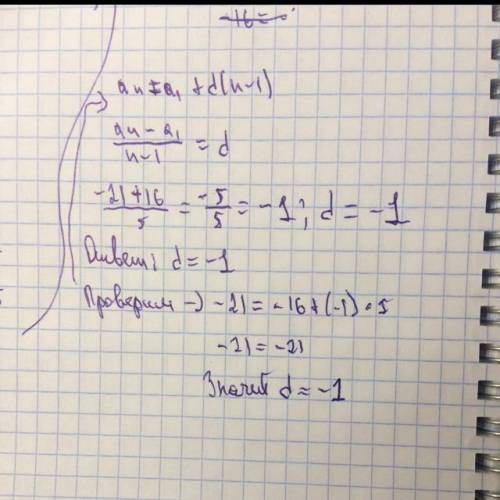 -16 =
an = a₁ + d(n-1)
(an - a₁)/(n-1) = d
(-21+16)/5 = (-5)/5 = -1; d = -1
Ответ: d = -1
Проверим → -21 = -16 + (-1) · 5
-21 = -21
Значит d = -1